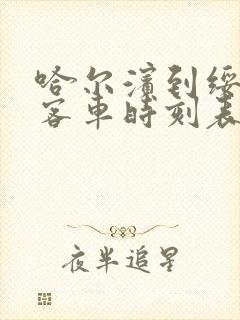 哈尔滨到绥
客车时刻表
夜半追星